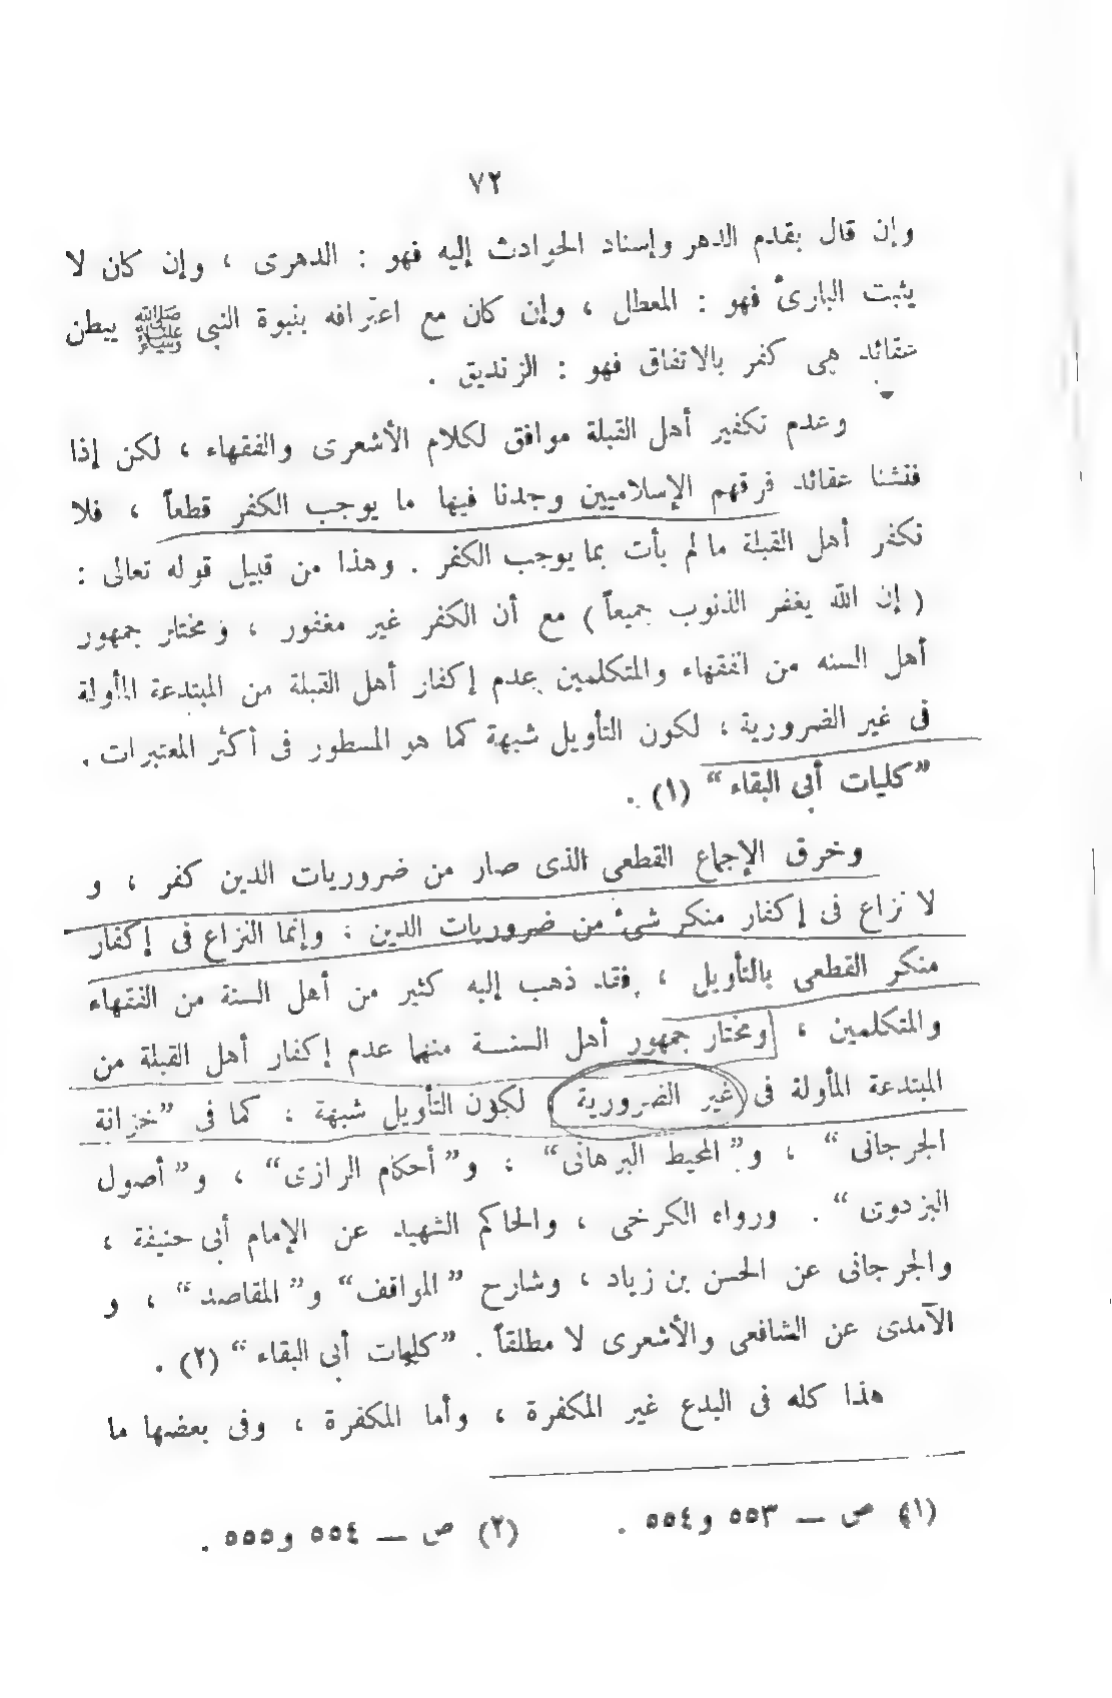 ٧٢
وإن قال بقدم الدهر وإسناد الحوادث إليه فهو : الدهرى ، وإن كان لا
يثبت البارئ فهو : المعطل ، وإن كان مع اعترافه بنبوة النبى ﷺ يبطن
عقائد هى كفر بالاتفاق فهو : الزنديق .
وعدم تكفير أهل القبلة موافق لكلام الأشعرى والفقهاء ، لكن إذا
فتشنا عقائد فرقهم الإسلاميين وجدنا فيها ما يوجب الكفر قطعاً ، فلا
نكفر أهل القبلة ما لم يأت بما يوجب الكفر . وهذا من قبيل قوله تعالى :
( إن الله يغفر الذنوب جميعاً ) مع أن الكفر غير مغفور ، ومختار جمهور
أهل السنه من الفقهاء والمتكلمين عدم إكفار أهل القبلة من المبتدعة المأولة
فى غير الضرورية ، لكون التأويل شبهة كما هو المسطور فى أكثر المعتبرات .
”كليات أبى البقاء“ (١) .
وخرق الإجماع القطعى الذى صار من ضروريات الدين كفر ، و
لا نزاع فى إكفار منكر شئ من ضروريات الدين ، وإنما النزاع فى إكفار
منكر القطعى بالتأويل ، فقد ذهب إليه كثير من أهل السنة من الفقهاء
والمتكلمين ، ومختار جمهور أهل السنة منهما عدم إكفار أهل القبلة من
المبتدعة المأولة فى غير الضرورية ، لكون التأويل شبهة ، كما فى ”خزانة
الجرجانى“ ، و”المحيط البرهانى“ ، و”أحكام الرازى“ ، و”أصول
البزدوى“ . ورواه الكرخى ، والحاكم الشهيد عن الإمام أبى حنيفة ،
والجرجانى عن الحسن بن زياد ، وشارح ”المواقف“ و”المقاصد“ ، و
الآمدى عن الشافعى والأشعرى لا مطلقاً . ”كليات أبى البقاء“ (٢) .
هذا كله فى البدع غير المكفرة ، وأما المكفرة ، وفى بعضها ما
(١) ص ــ ٥٥٣ و٥٥٤ . (٢) ص ــ ٥٥٤ و٥٥٥ .